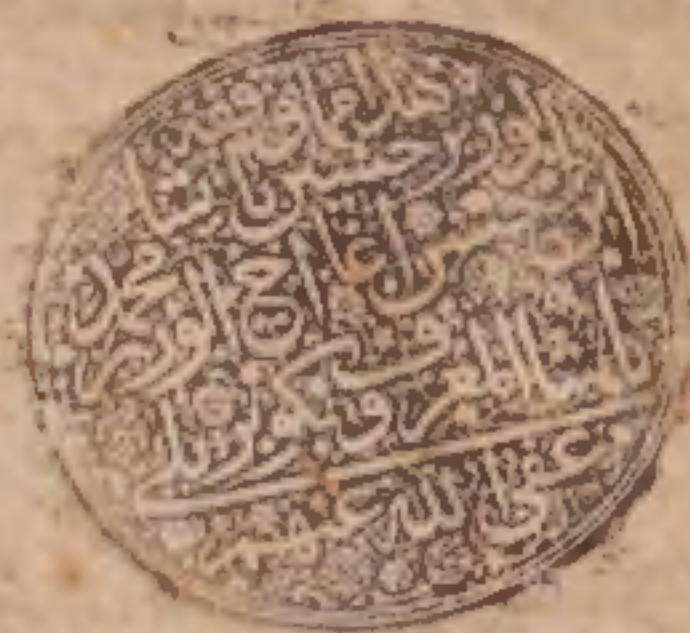 مما وقفه
الوزير حسين پاشا
ابن حسن اغا اخ الوزير محمد
پاشا المعروف بكوپريلى
عفى الله عنهم